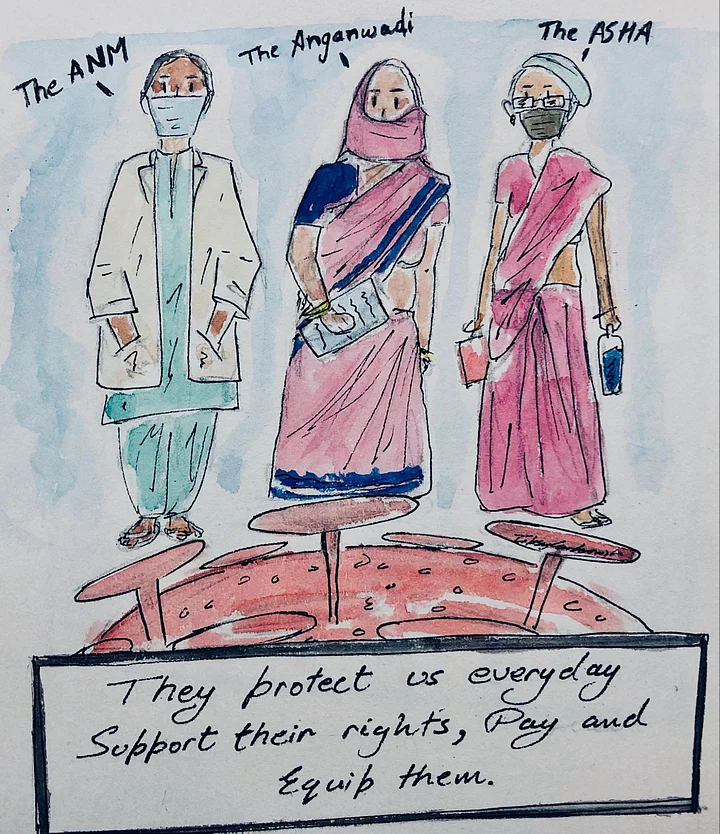 The ANM
The Anganwadi
The ASHA
They protect us everyday
Support their rights, Pay and
Equip them.